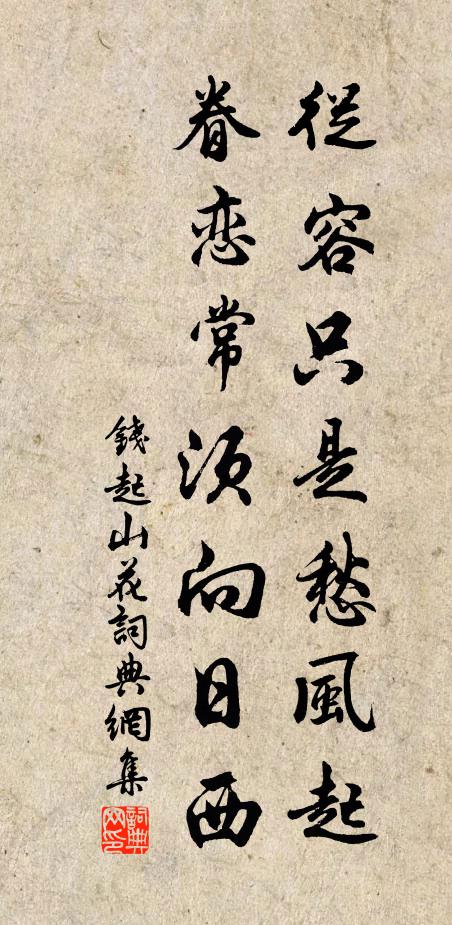 從容只是愁風起
眷恋常須向日西
錢起山花詞典網集
詞典網印